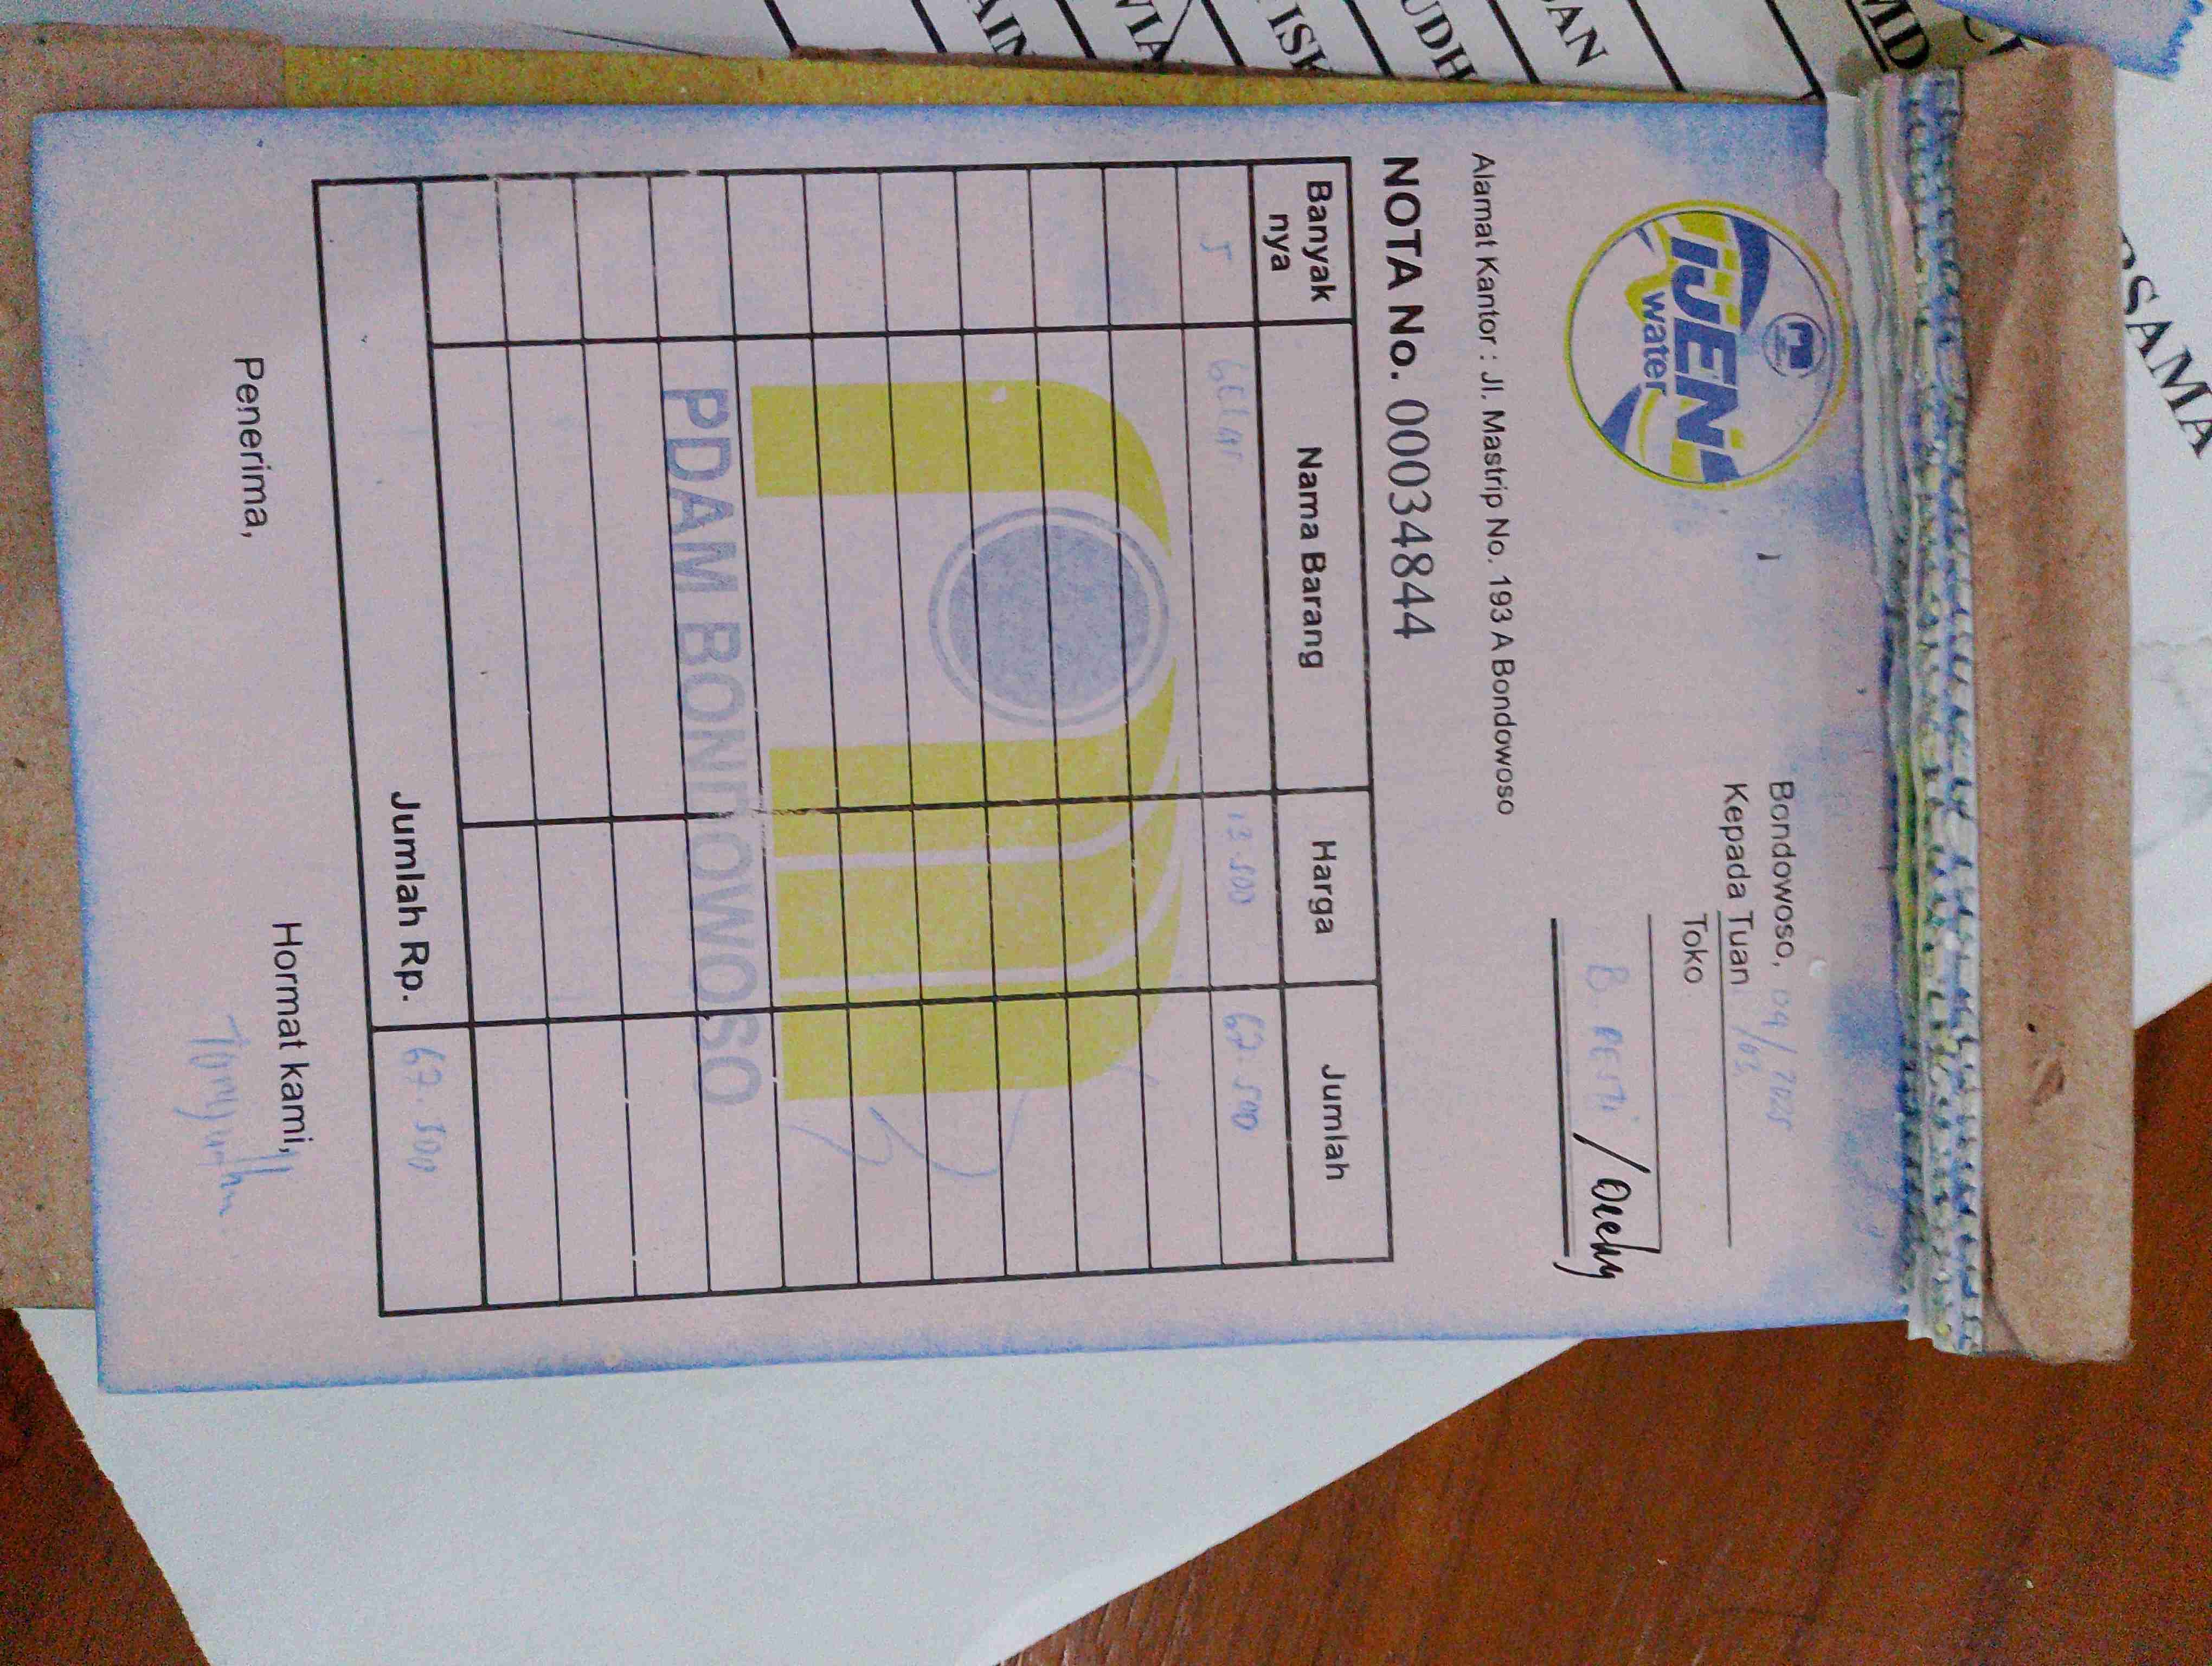 IJEN
water
Bondowoso, 04/03/2025
Kepada Tuan
Toko
B. RESTI / Ocehy
Alamat Kantor : Jl. Mastrip No. 193 A Bondowoso
NOTA No. 00034844
Banyak nya Nama Barang Harga Jumlah
5 GELAS 13.500 67.500
PDAM BONDOWOSO
Jumlah Rp. 67.500
Penerima, Hormat kami,
BERSAMA